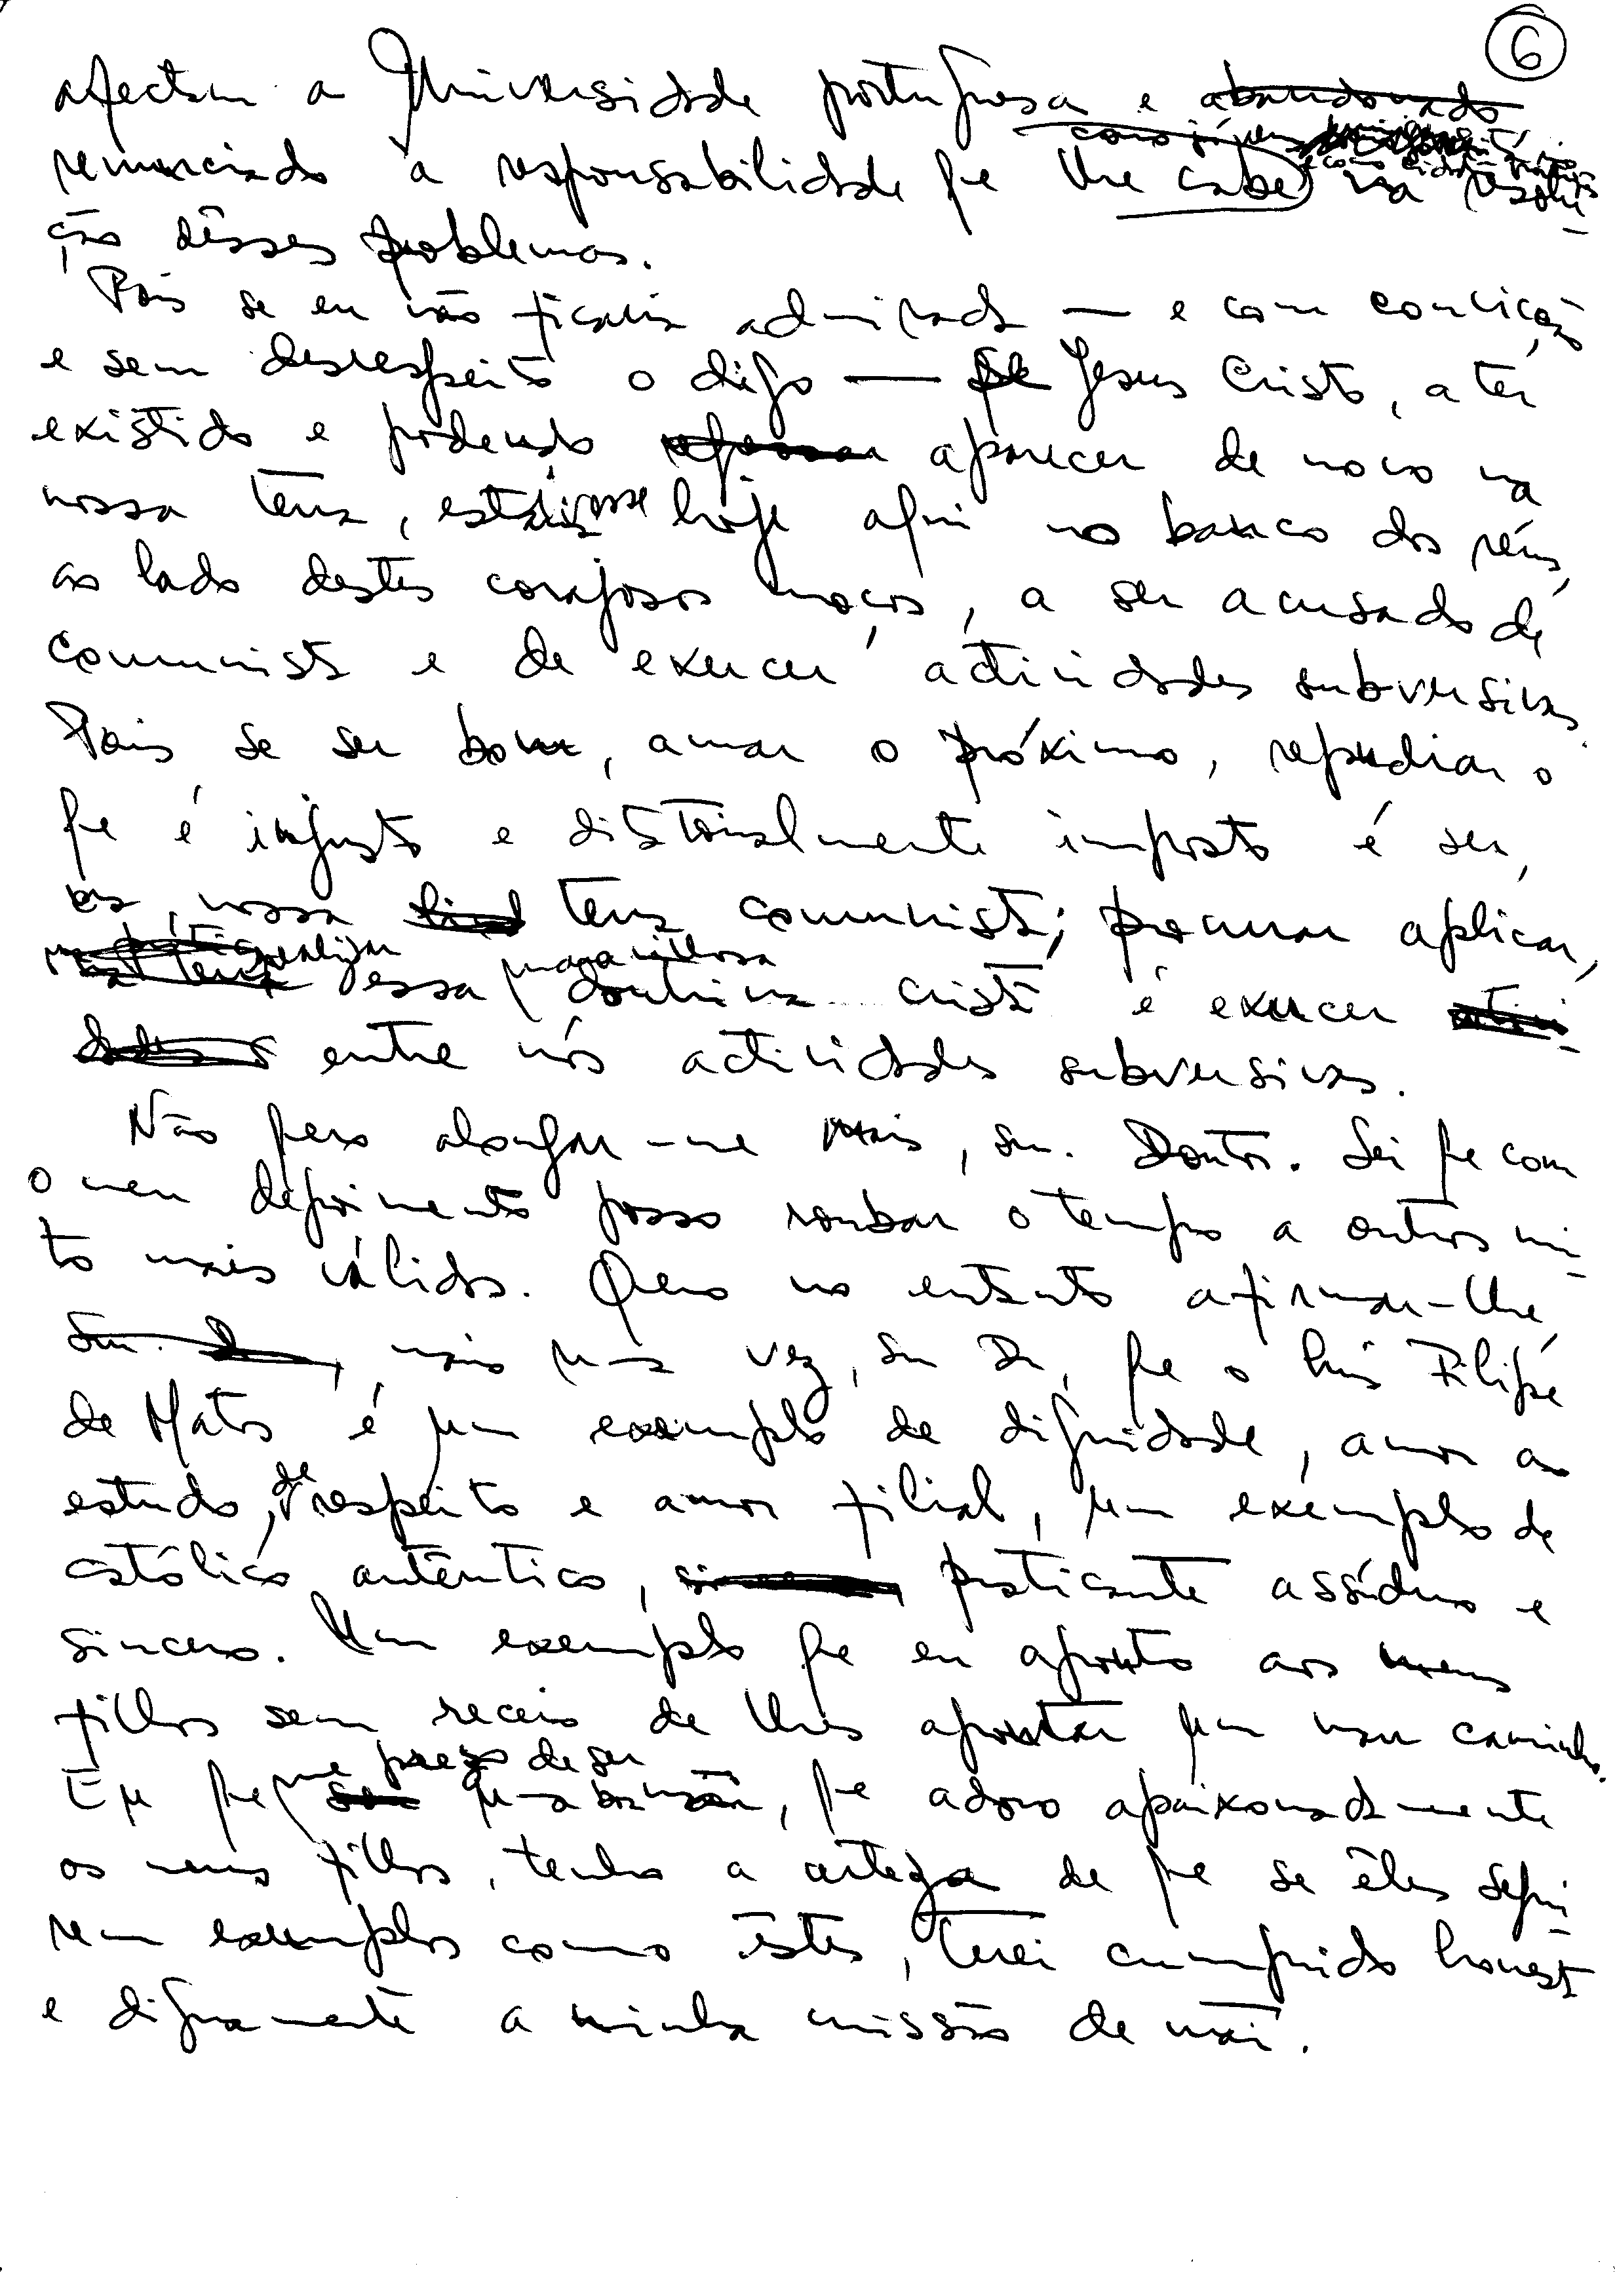 6
afectam a Universidade portuguesa e abandonado
como jovem
e como cidadão
renunciado à responsabilidade que lhe cabe na resolu-
ção dêsses problemas.
Pois se eu não ficaria admirada — e com convicção
e sem desrespeito o digo — se Jesus Cristo, a ter
existido e podendo aparecer de novo na
nossa terra, estivesse hoje aqui no banco dos réus,
ao lado destes corajosos moços, a ser acusado de
comunista e de exercer actividades subversivas.
Pois se ser bom, amar o próximo, repudiar o
que é injusto e ditatorialmente imposto é ser,
na nossa terra comunista; procurar aplicar,
realizar essa maravilhosa doutrina cristã é exercer activi-
dades entre nós actividades subversivas.
Não quero alongar-me mais, sr. Doutor. Sei que com
o meu depoimento posso roubar o tempo a outros mui-
to mais válidos. Quero no entanto afirmar-lhe
Sr. Dr., mais uma vez, sr Dr, que o Luis Filipe
de Matos é um exemplo de dignidade, amor ao
estudo, de respeito e amor filial, um exemplo de
católico autêntico, praticante assíduo e
sincero. Um exemplo que eu aponto aos meus
filhos sem receio de lhes apontar um mau caminho.
Eu que me prezo de ser uma boa mãe, que adoro apaixonadamente
os meus filhos, tenho a certeza de que se êles segui-
rem exemplos como êstes, terei cumprido honesta
e dignamente a minha missão de mãi.